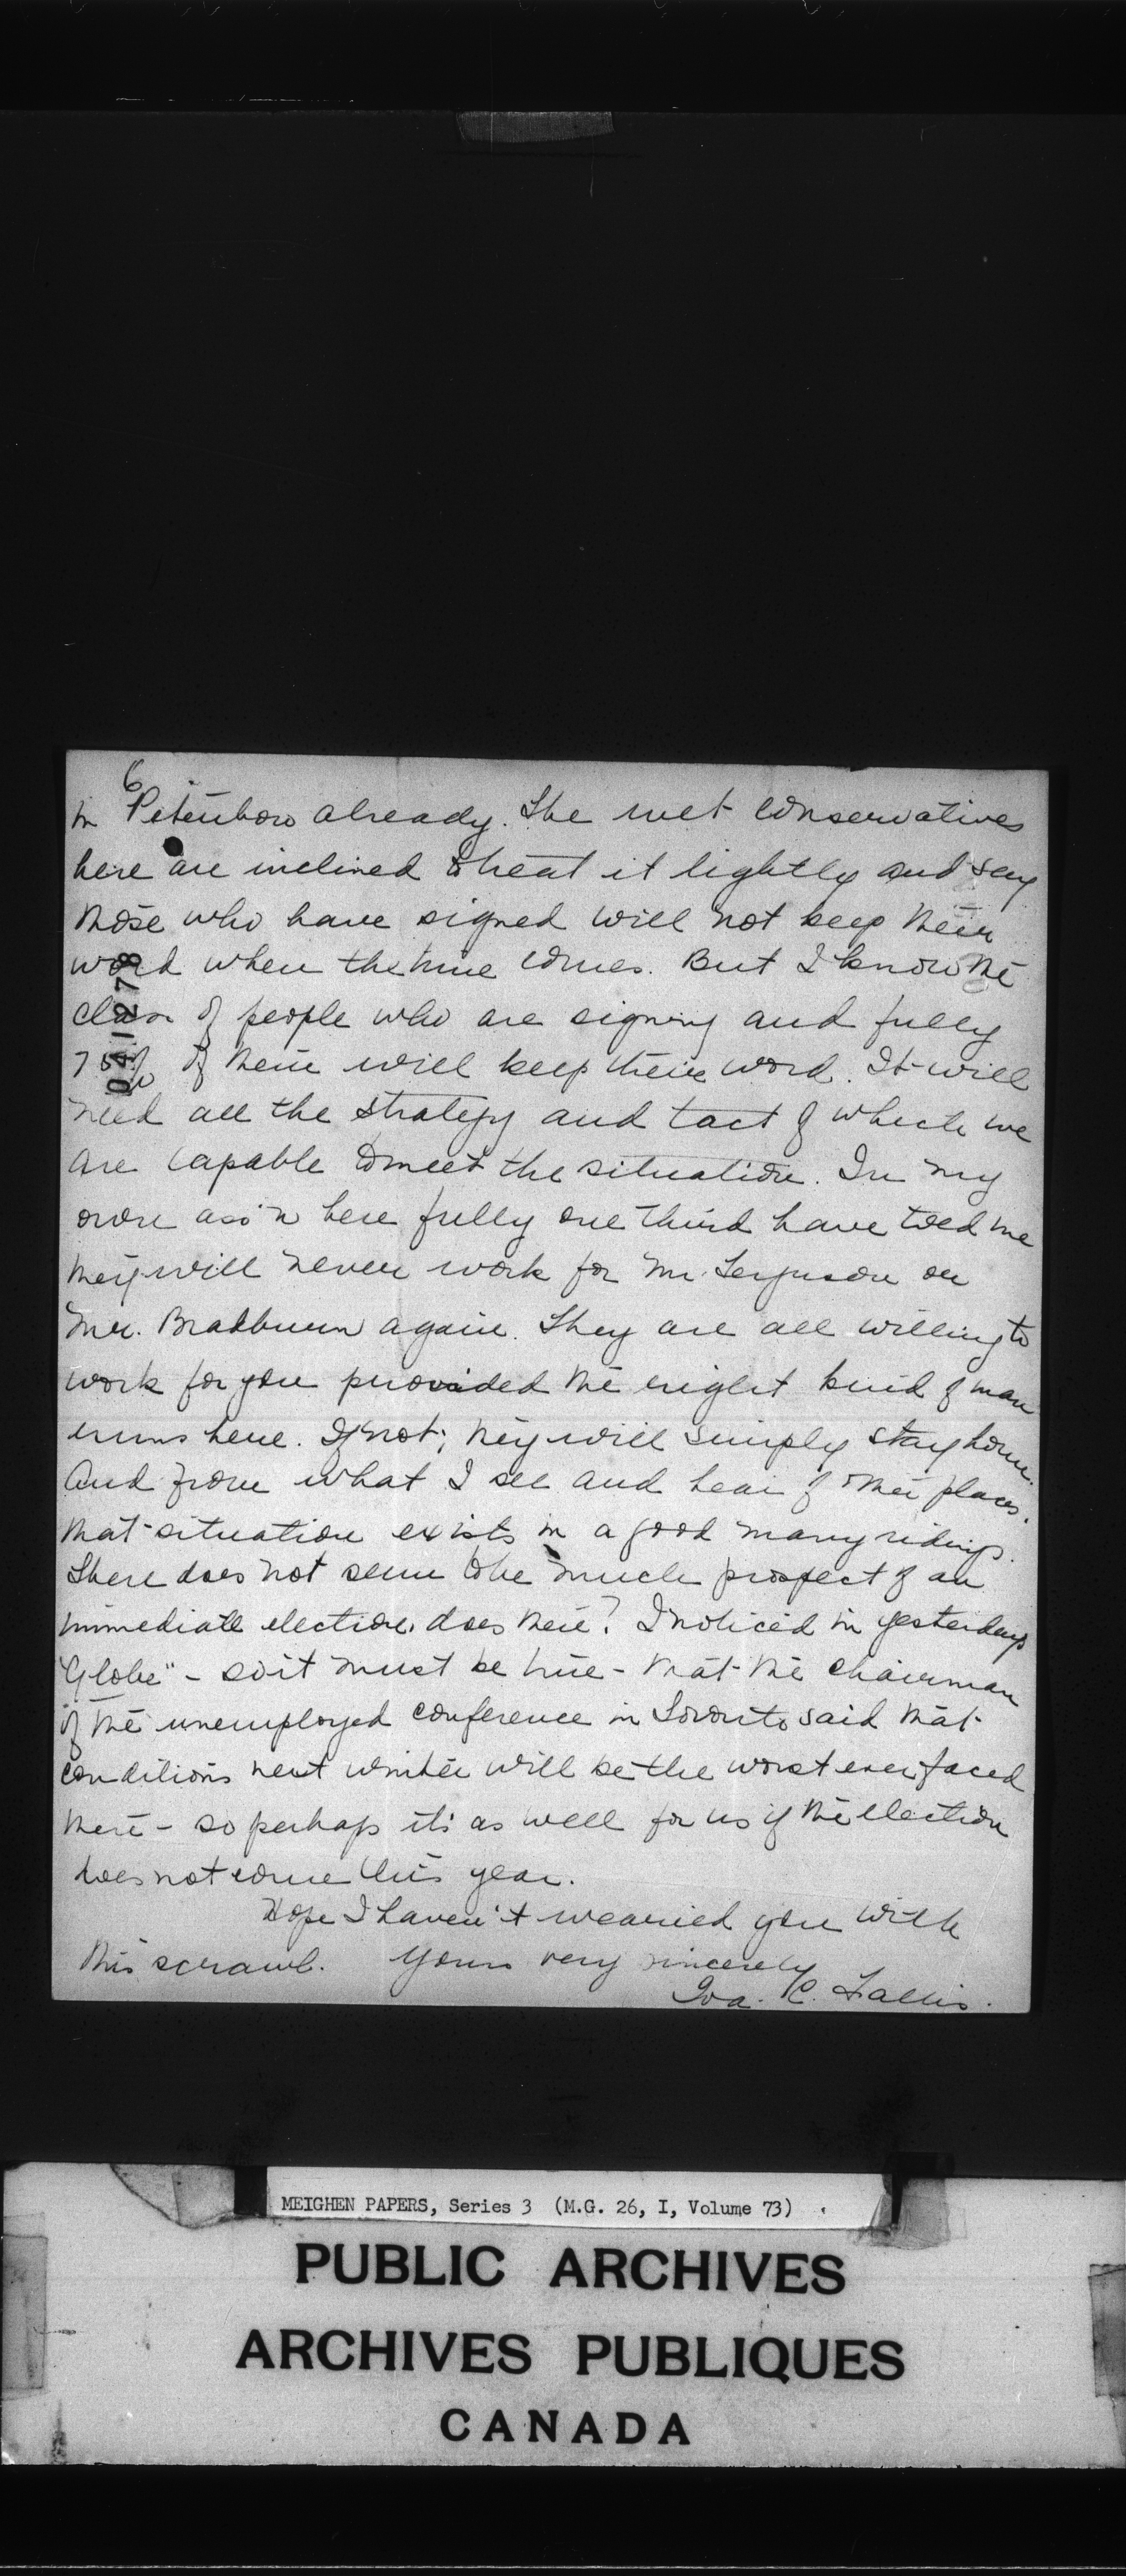 6
in Peterboro already. The wet conservatives
here are inclined to treat it lightly and say
those who have signed will not keep their
word when the time comes. But I know the
class of people who are signing and fully
75% of them will keep their word. It will
need all the strategy and tact of which we
are capable to meet the situation. In my
own ass'n here fully one third have told me
they will never work for Mr. Ferguson or
Mr. Bradburn again. They are all willing to
work for you provided the right kind of man
runs here. If not, they will simply stay home.
And from what I see and hear of other places,
that situation exists in a good many ridings.
There does not seem to be much prospect of an
immediate election, does there? I noticed in yesterdays
"Globe" - so it must be true - that the chairman
of the unemployed conference in Toronto said that
conditions next winter will be the worst ever faced
there - so perhaps it's as well for us if the election
does not come this year.
Hope I haven't wearied you with
this scrawl. Yours very sincerely
Iva. C. Fallis.
041278
MEIGHEN PAPERS, Series 3 (M.G. 26, I, Volume 73)
PUBLIC ARCHIVES
ARCHIVES PUBLIQUES
CANADA